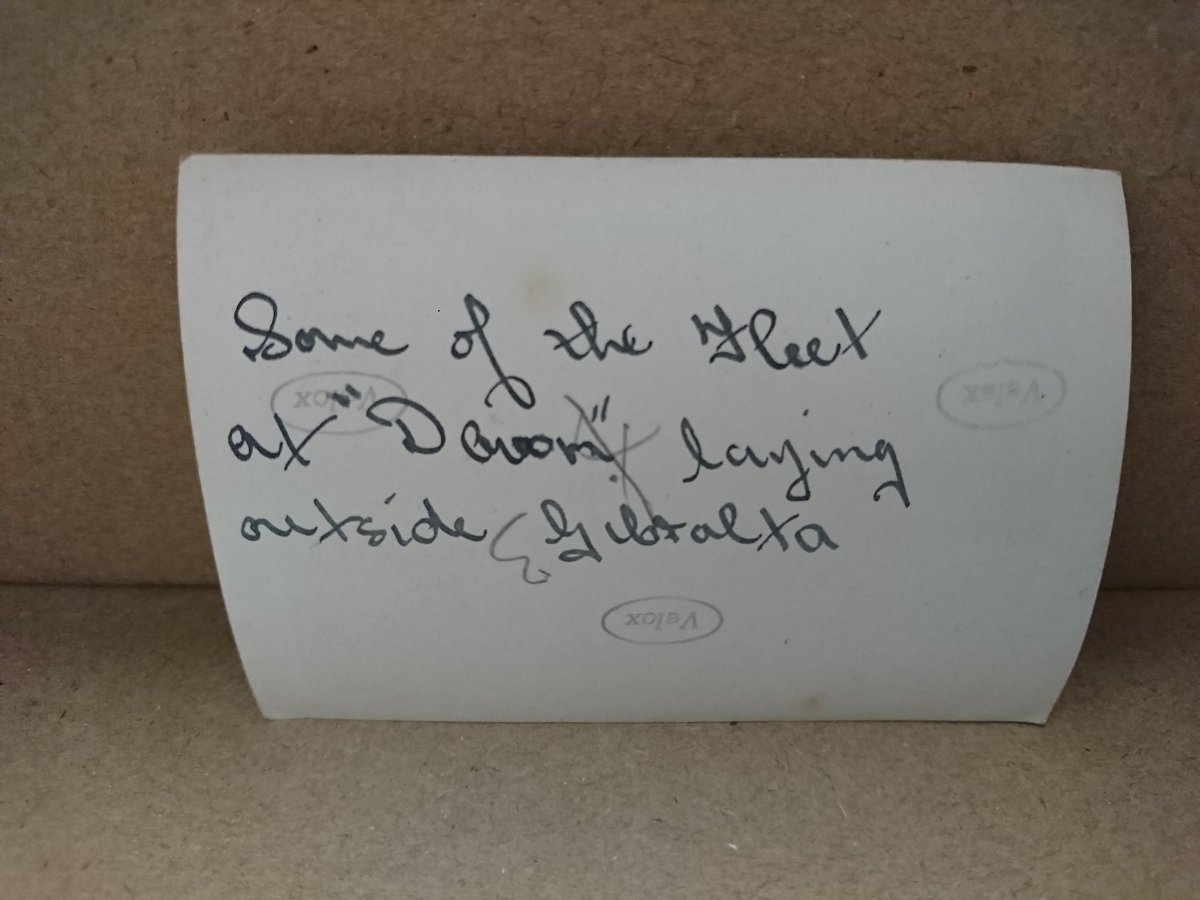 Some of the Fleet
at " " laying
outside Gibralta
Velox
Velox
Velox